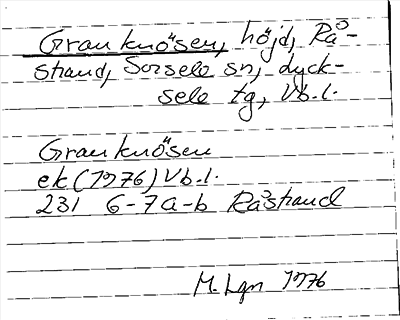 Granknösen, höjd, Rå-
strand, Sorsele sn, Lyck-
sele tg, Vb.l.
Granknösen
ek (1976) Vb.l.
231 6-7a-b Råstrand
M. Lgn 1976